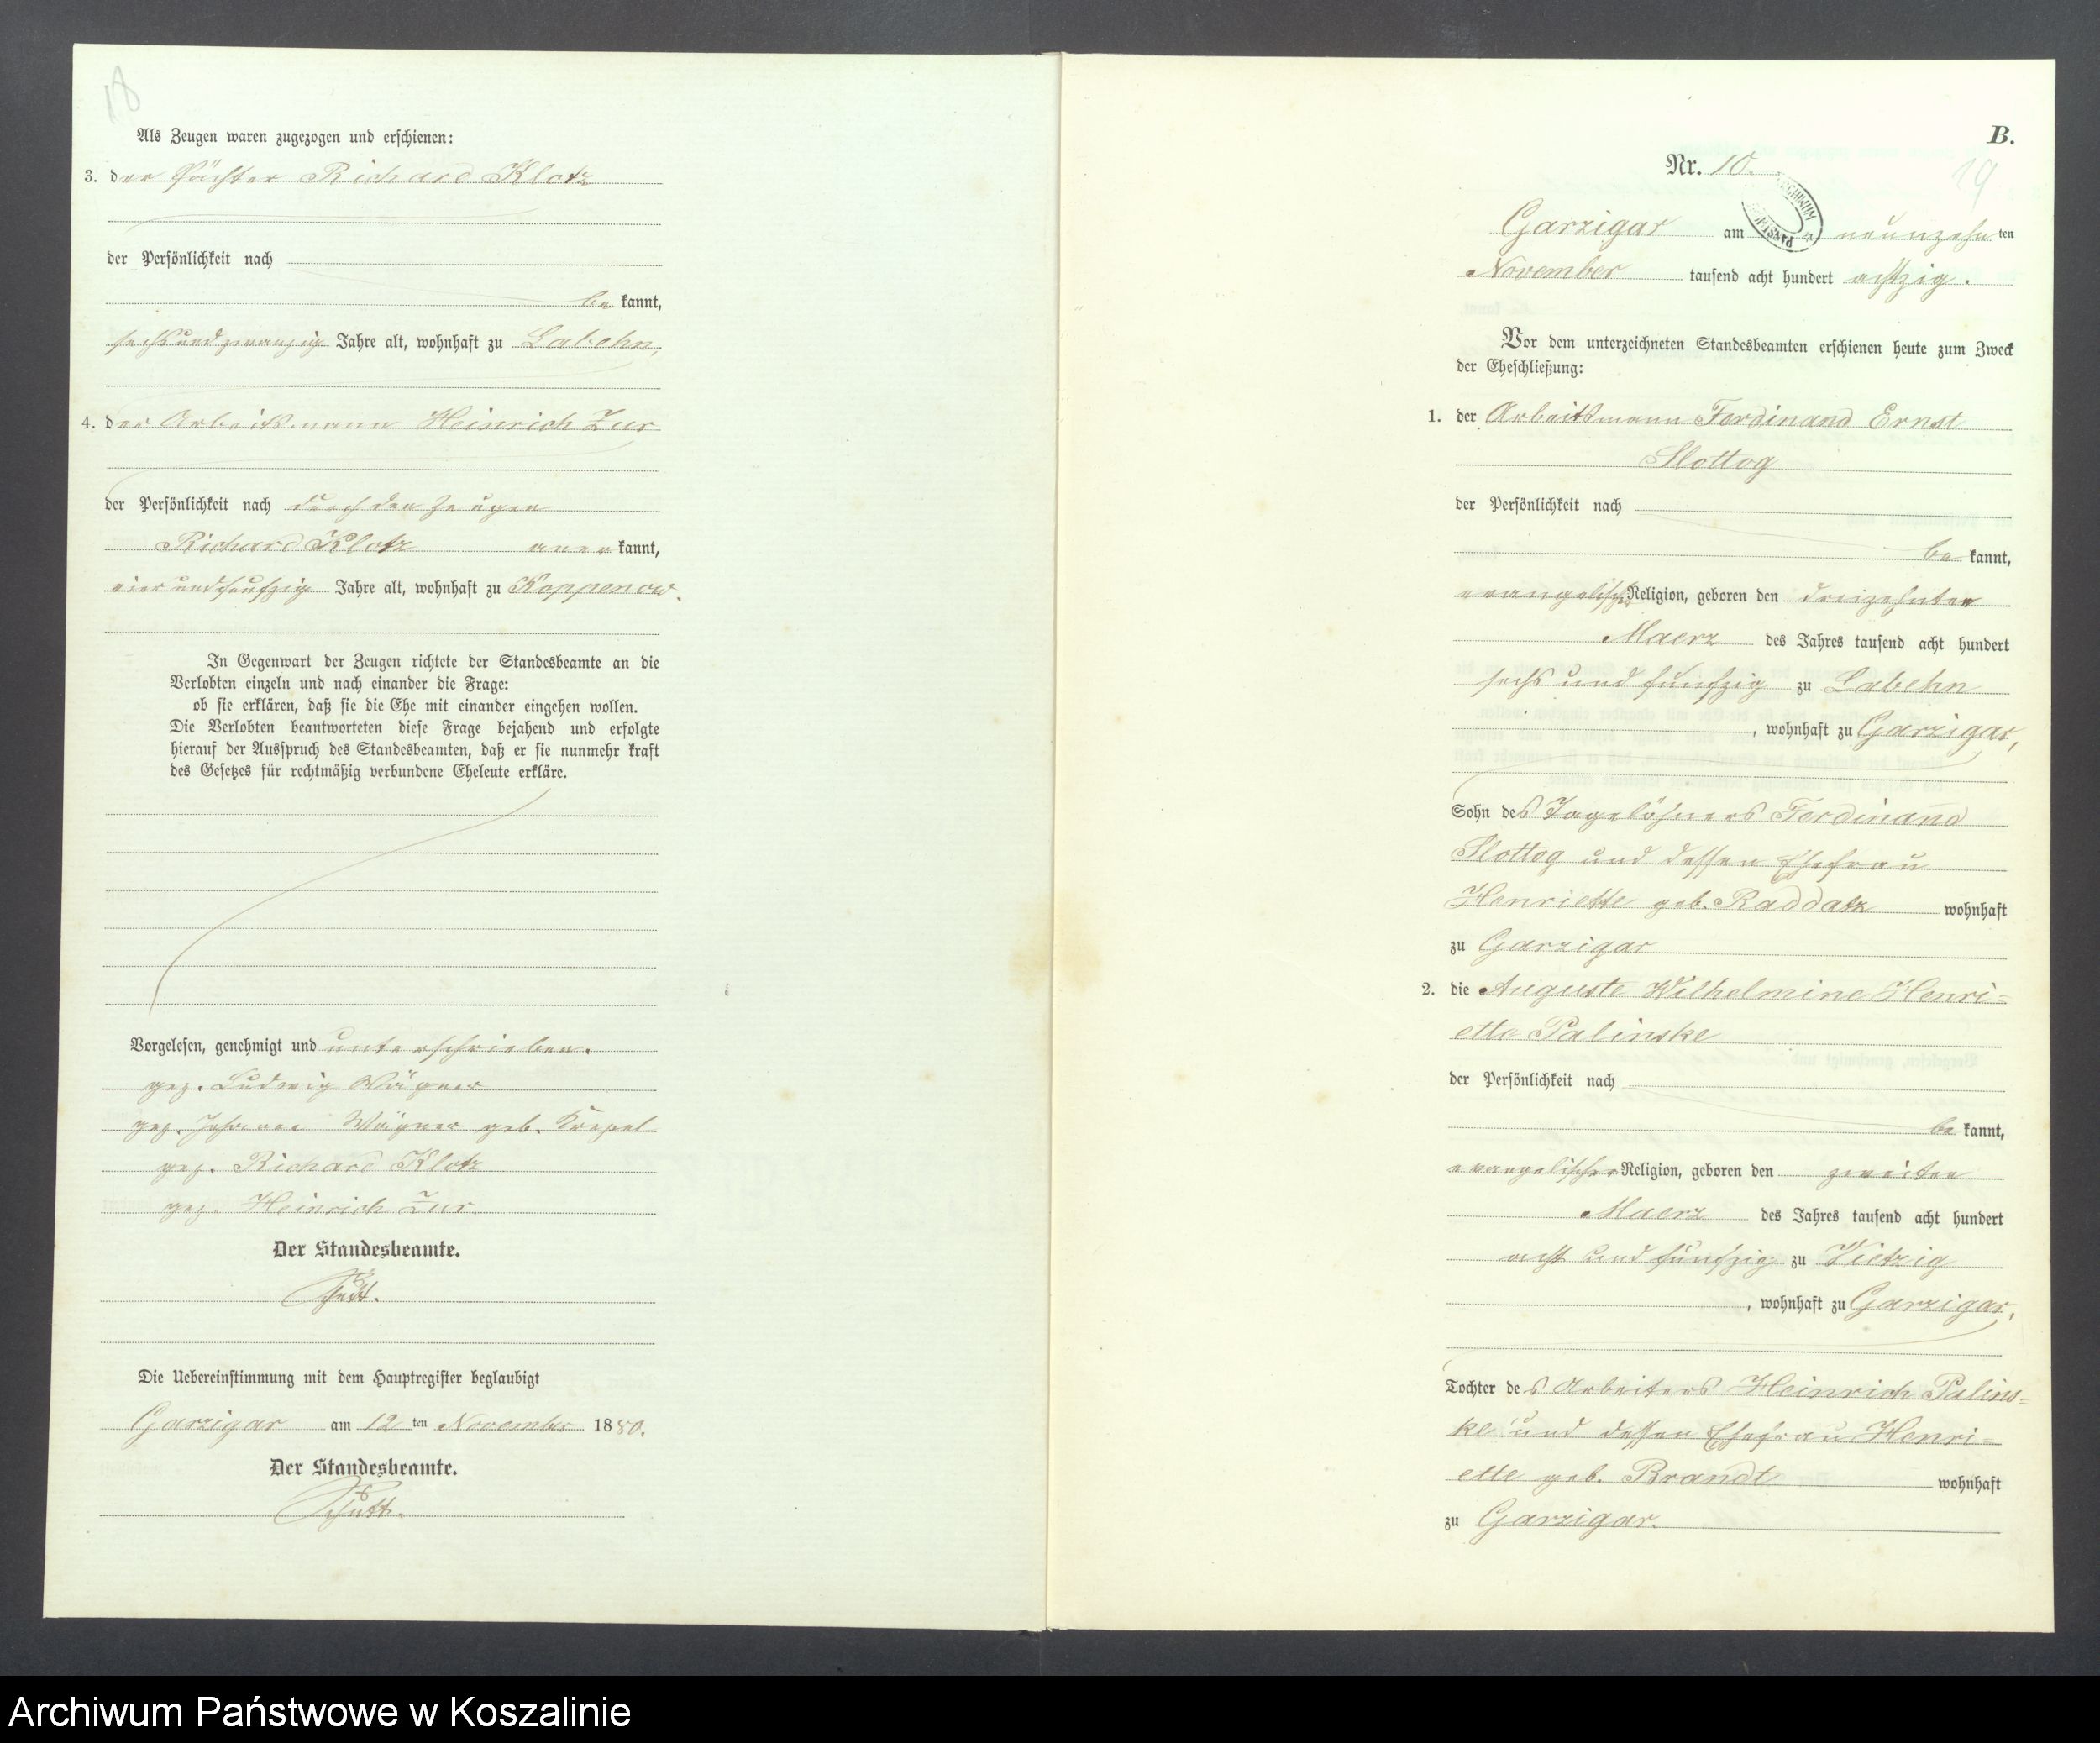 18
Als Zeugen waren zugezogen und erschienen:
3. der Pächter Richard Klotz
der Persönlichkeit nach
be kannt,
sechsundzwanzig Jahre alt, wohnhaft zu Labehn,
4. der Arbeitsmann Heinrich Zur
der Persönlichkeit nach durch den Zeugen
Richard Klotz aner kannt,
vierundfünfzig Jahre alt, wohnhaft zu Koppenow.
In Gegenwart der Zeugen richtete der Standesbeamte an die
Verlobten einzeln und nach einander die Frage:
ob sie erklären, daß sie die Ehe mit einander eingehen wollen.
Die Verlobten beantworteten diese Frage bejahend und erfolgte
hierauf der Ausspruch des Standesbeamten, daß er sie nunmehr kraft
des Gesetzes für rechtmäßig verbundene Eheleute erkläre.
Vorgelesen, genehmigt und unterschrieben.
gez. Ludwig Wägner
gez. Johanna Wägner geb.
gez. Richard Klotz
gez. Heinrich Zur.
Der Standesbeamte.
Die Uebereinstimmung mit dem Hauptregister beglaubigt
Garzigar am 12 ten November 1880.
Der Standesbeamte.
B.
Nr. 10.
19
Garzigar am neunzehn ten
November tausend acht hundert achtzig.
Vor dem unterzeichneten Standesbeamten erschienen heute zum Zweck
der Eheschließung:
1. der Arbeitsmann Ferdinand Ernst
Slottog
der Persönlichkeit nach
be kannt,
evangelischer Religion, geboren den dreizehnten
Maerz des Jahres tausend acht hundert
sechs und fünfzig zu Labehn
, wohnhaft zu Garzigar,
Sohn des Tagelöhners Ferdinand
Slottog und dessen Ehefrau
Henriette geb. Raddatz wohnhaft
zu Garzigar
2. die Auguste Wilhelmine Henri=
ette Palinske
der Persönlichkeit nach
be kannt,
evangelischer Religion, geboren den zweiten
Maerz des Jahres tausend acht hundert
acht und fünfzig zu Vietzig
, wohnhaft zu Garzigar,
Tochter des Arbeiters Heinrich Palins=
ke und dessen Ehefrau Henri=
ette geb. Brandt wohnhaft
zu Garzigar.
Archiwum Państwowe w Koszalinie